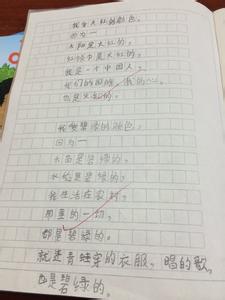 我爱大红的颜色。
因为一
太阳是大红的。
红领巾是大红的。
我是一个中国人。
我们的国旗，我的心。
也是火红的。
我爱碧绿的颜色。
因为一
水面是碧绿的。
水稻是碧绿的。
我生活在农村。
那里的一切。
都是碧绿的。
就连青蛙穿的衣服，唱的歌。
也是碧绿的。